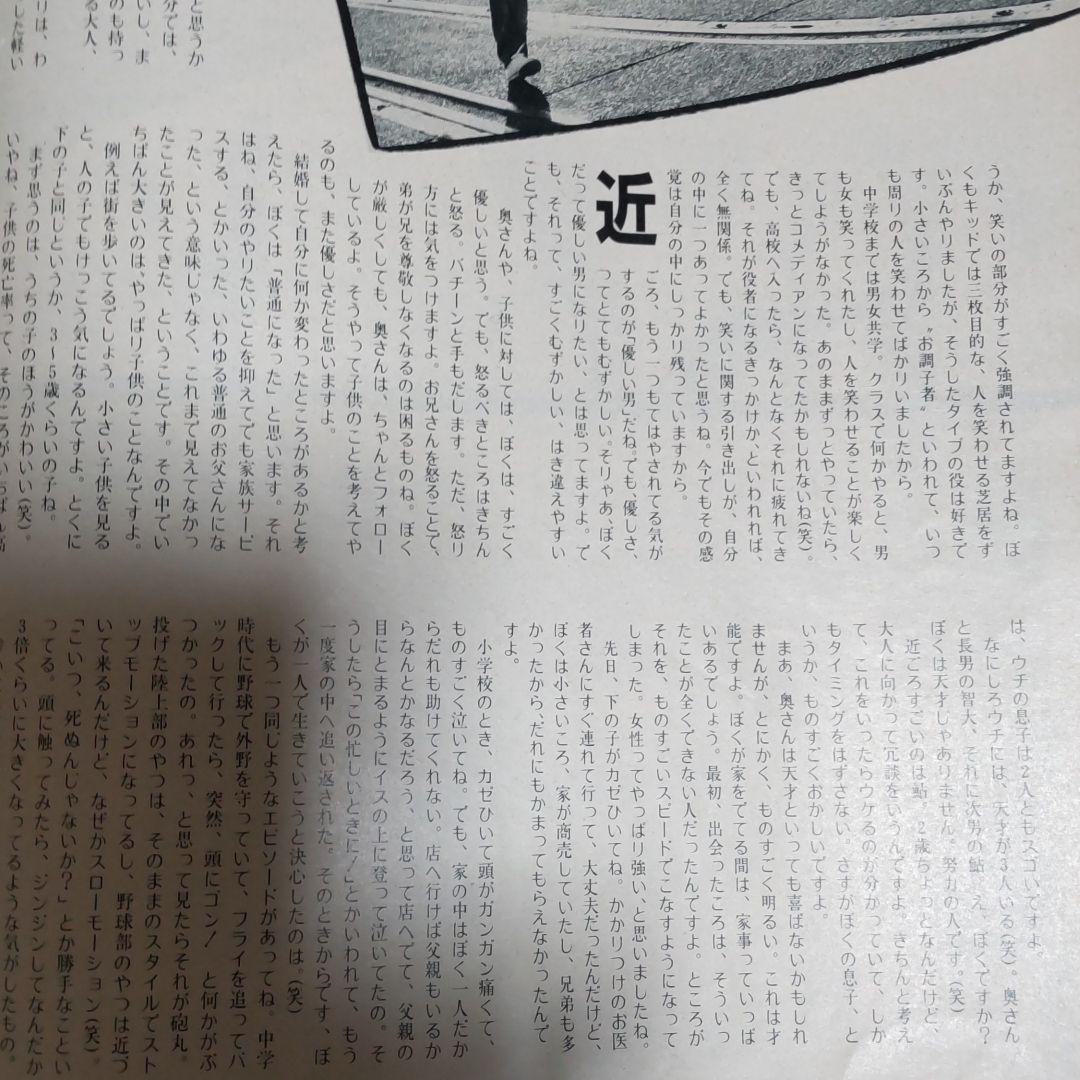 と思うか
分では、
いし、ま
のも持っ
る大人、
りは、わ
した軽い
うか、笑いの部分がすごく強調されてますよね。ぼ
くもキッドでは三枚目的な、人を笑わせる芝居をず
いぶんやりましたが、そうしたタイプの役は好きで
す。小さいころから〝お調子者〟といわれて、いつ
も周りの人を笑わせてばかりいましたから。
中学校までは男女共学。クラスで何かやると、男
も女も笑ってくれたし、人を笑わせることが楽しく
てしようがなかった。あのままずっとやっていたら、
きっとコメディアンになってたかもしれないね(笑)。
でも、高校へ入ったら、なんとなくそれに疲れてき
てね。それが役者になるきっかけか、といわれれば、
全く無関係。でも、笑いに関する引き出しが、自分
の中に一つあってよかったと思うね。今でもその感
覚は自分の中にしっかり残っていますから。
近
ごろ、もう一つもてはやされてる気が
するのが「優しい男」だね。でも、優しさ、
ってとてもむずかしい。そりゃあ、ぼく
だって優しい男になりたい、とは思ってますよ。で
も、それって、すごくむずかしい、はき違えやすい
ことですよね。
奥さんや、子供に対しては、ぼくは、すごく
優しいと思う。でも、怒るべきところはきちん
と怒る。バチーンと手もだします。ただ、怒り
方には気をつけますよ。お兄さんを怒ることで、
弟が兄を尊敬しなくなるのは困るものね。ぼく
が厳しくしても、奥さんは、ちゃんとフォロー
しているよ。そうやって子供のことを考えてや
るのも、また優しさだと思いますよ。
結婚して自分に何か変わったところがあるかと考
えたら、ぼくは「普通になった」と思います。それ
はね、自分のやりたいことを抑えてでも家族サービ
スする、とかいった、いわゆる普通のお父さんにな
った、という意味じゃなく、これまで見えてなかっ
たことが見えてきた、ということです。その中でい
ちばん大きいのは、やっぱり子供のことなんですよ。
例えば街を歩いてるでしょう。小さい子供を見る
と、人の子でもけっこう気になるんですよ。とくに
下の子と同じというか、3〜5歳くらいの子ね。
まず思うのは、うちの子のほうがかわいい(笑)。
いやね、子供の死亡率って、そのころがいちばん高
は、ウチの息子は2人ともスゴイですよ。
なにしろウチには、天才が3人いる(笑)。奥さん
と長男の智大、それに次男の鮎。え、ぼくですか?
ぼくは天才じゃありません。努力の人です。(笑)
近ごろすごいのは鮎。2歳ちょっとなんだけど、
大人に向かって冗談をいうんですよ。きちんと考え
て、これをいったらウケるのが分かっていて、しか
もタイミングをはずさない。さすがぼくの息子、と
いうか、ものすごくおかしいですよ。
まあ、奥さんは天才といっても喜ばないかもしれ
ませんが、とにかく、ものすごく明るい。これは才
能ですよ。ぼくが家をでてる間は、家事っていっぱ
いあるでしょう。最初、出会ったころは、そういっ
たことが全くできない人だったんですよ。ところが
それを、ものすごいスピードでこなすようになって
しまった。女性ってやっぱり強い、と思いましたね。
先日、下の子がカゼひいてね。かかりつけのお医
者さんにすぐ連れて行って、大丈夫だったんだけど、
ぼくは小さいころ、家が商売していたし、兄弟も多
かったから、だれにもかまってもらえなかったんで
すよ。
小学校のとき、カゼひいて頭がガンガン痛くて、
ものすごく泣いてね。でも、家の中はぼく一人だか
らだれも助けてくれない。店へ行けば父親もいるか
らなんとかなるだろう、と思って店へでて、父親の
目にとまるようにイスの上に登って泣いてたの。そ
うしたら「この忙しいときに!」とかいわれて、もう
一度家の中へ追い返された。そのときからです、ぼ
くが一人で生きていこうと決心したのは。(笑)
もう一つ同じようなエピソードがあってね。中学
時代に野球で外野を守っていて、フライを追ってバ
ックして行ったら、突然、頭にゴン! と何かがぶ
つかったの。あれっ、と思って見たらそれが砲丸。
投げた陸上部のやつは、そのままのスタイルでスト
ップモーションになってるし、野球部のやつは近づ
いて来るんだけど、なぜかスローモーション(笑)。
「こいつ、死ぬんじゃないか?」とか勝手なこといっ
ってる。頭に触ってみたら、ジンジンしてなんだか
3倍くらいに大きくなってるような気がしたもの。